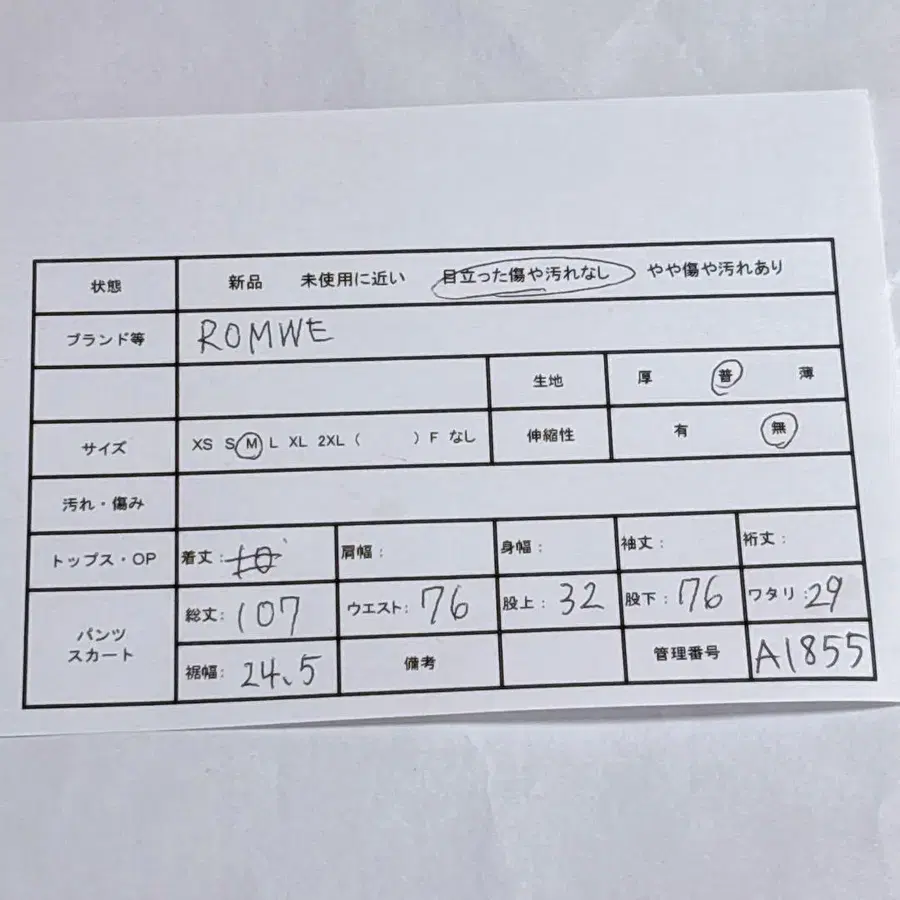 状態 新品 未使用に近い 目立った傷や汚れなし やや傷や汚れあり
ブランド等 ROMWE
生地 厚 普 薄
サイズ XS S M L XL 2XL ( ) F なし 伸縮性 有 無
汚れ・傷み
トップス・OP 着丈: 肩幅: 身幅: 袖丈: 裄丈:
パンツ スカート
総丈: 107 ウエスト: 76 股上: 32 股下: 76 ワタリ: 29
裾幅: 24.5 備考 管理番号 A1855